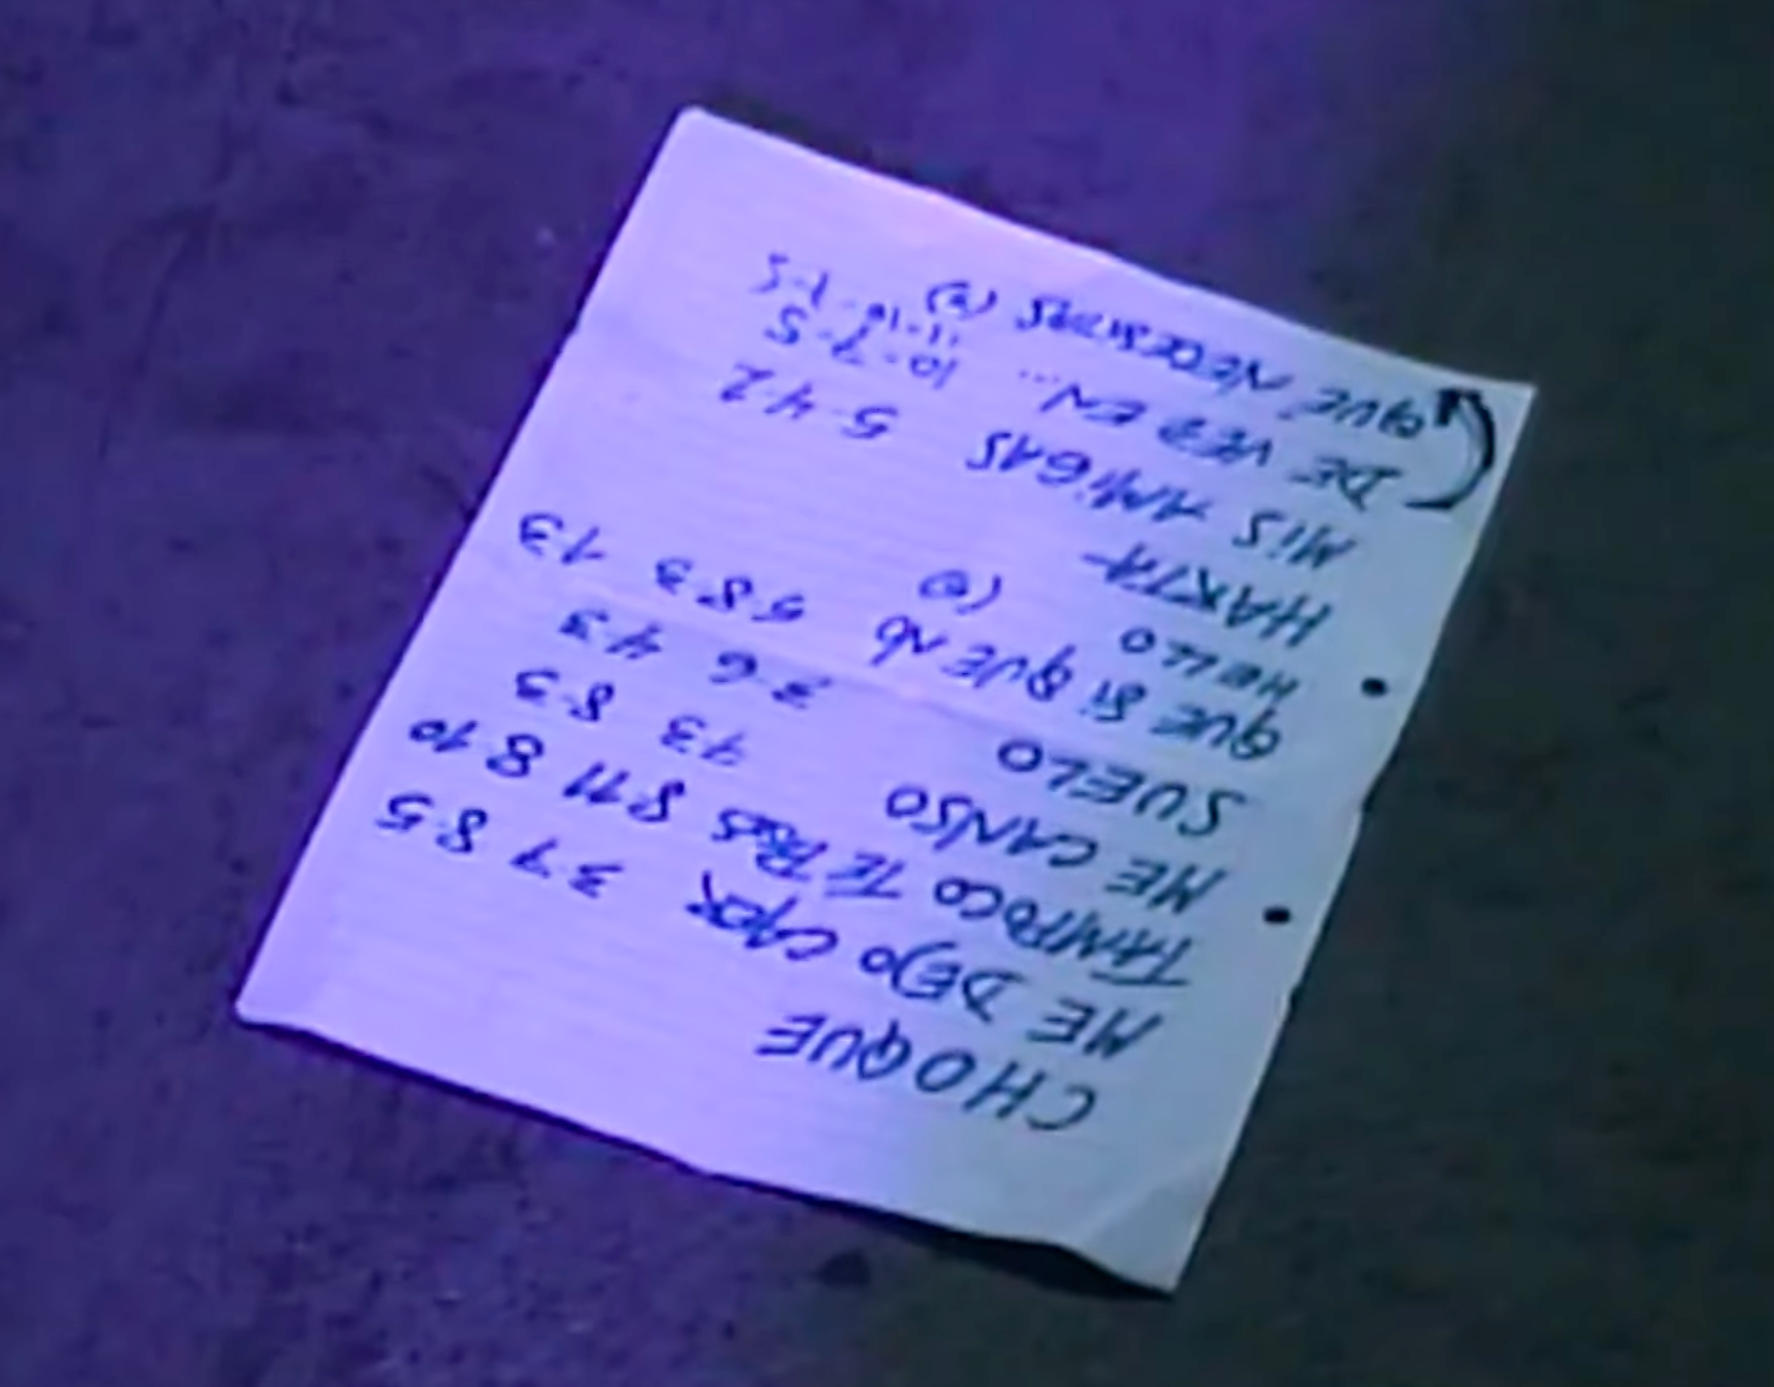 CHOQUE
ME DEJO CAER 3·7 8·5
TAMPOCO TE PIDO 8·11 8·10
ME CANSO 43 8·3
SUELO 7·6 4·3
QUE SI QUE NO 5·8·3 1·3
HELLO (0)
HARTA
MIS AMIGAS 5·4·2
DE VEZ EN... 10-7-5
QUE NECESITAS (2) 11-10-7-5